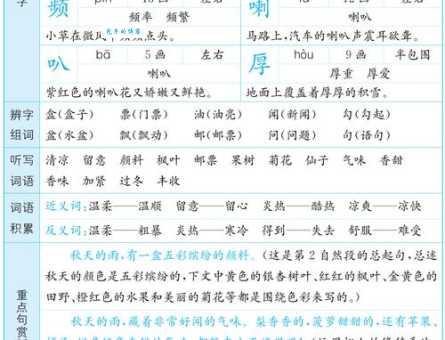 频率 频繁
小草在微风中频频点头。
喇叭
马路上,汽车的喇叭声震耳欲聋。
叭 bā 5画 左右
喇叭
紫红色的喇叭花又娇嫩又鲜艳。
厚 hòu 9画 半包围
厚重 厚爱
地面上覆盖着厚厚的积雪。
辨字组词
盒(盒子) 票(门票) 油(油亮) 闻(新闻) 勾(勾起)
盆(水盆) 飘(飘动) 邮(邮票) 问(问题) 句(语句)
听写词语
清凉 留意 颜料 枫叶 邮票 果树 菊花 仙子 气味 香甜
香味 加紧 过冬 丰收
词语积累
近义词:温柔——温顺 留意——留心 炎热——酷热 凉爽——凉快
反义词:温柔——粗暴 炎热——寒冷 得到——失去 舒服——难受
重点句赏
秋天的雨,有一盒五彩缤纷的颜料。(这是第2自然段的总起句,总述
秋天的颜色是五彩缤纷的,下文中黄色的银杏树、红红的枫叶、金黄色的
田野、橙红色的水果和美丽的菊花等都是围绕色彩来写的。)
秋天的雨,藏着非常好闻的气味。梨香香的,菠萝甜甜的,还有苹果、